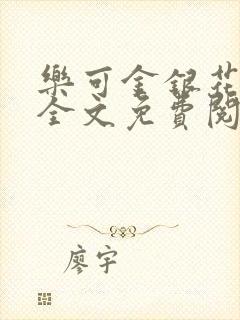 樂可金銀花
全文免費閱
廖宇